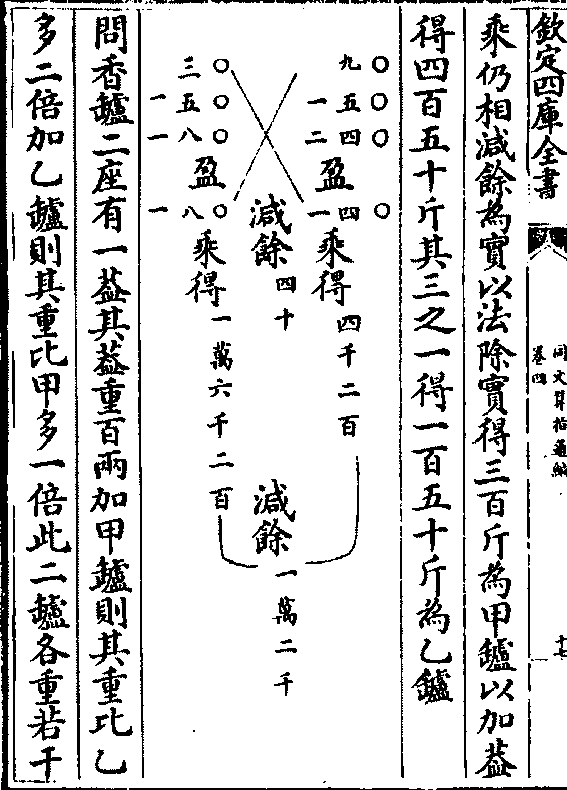 欽定四庫全書
同文算指通編
卷四
十七
乘仍相減餘為實以法除實得三百斤為甲鑪以加葢
得四百五十斤其三之一得一百五十斤為乙鑪
九〇
一五〇
二四〇
盈
一四〇
乘得
四千二百
減餘
四十
減餘
一萬二千
三〇
一五〇
一八〇
盈
一八〇
乘得
一萬六千二百
問香鑪二座有一葢其葢重百兩加甲鑪則其重比乙
多二倍加乙鑪則其重比甲多一倍此二鑪各重若干